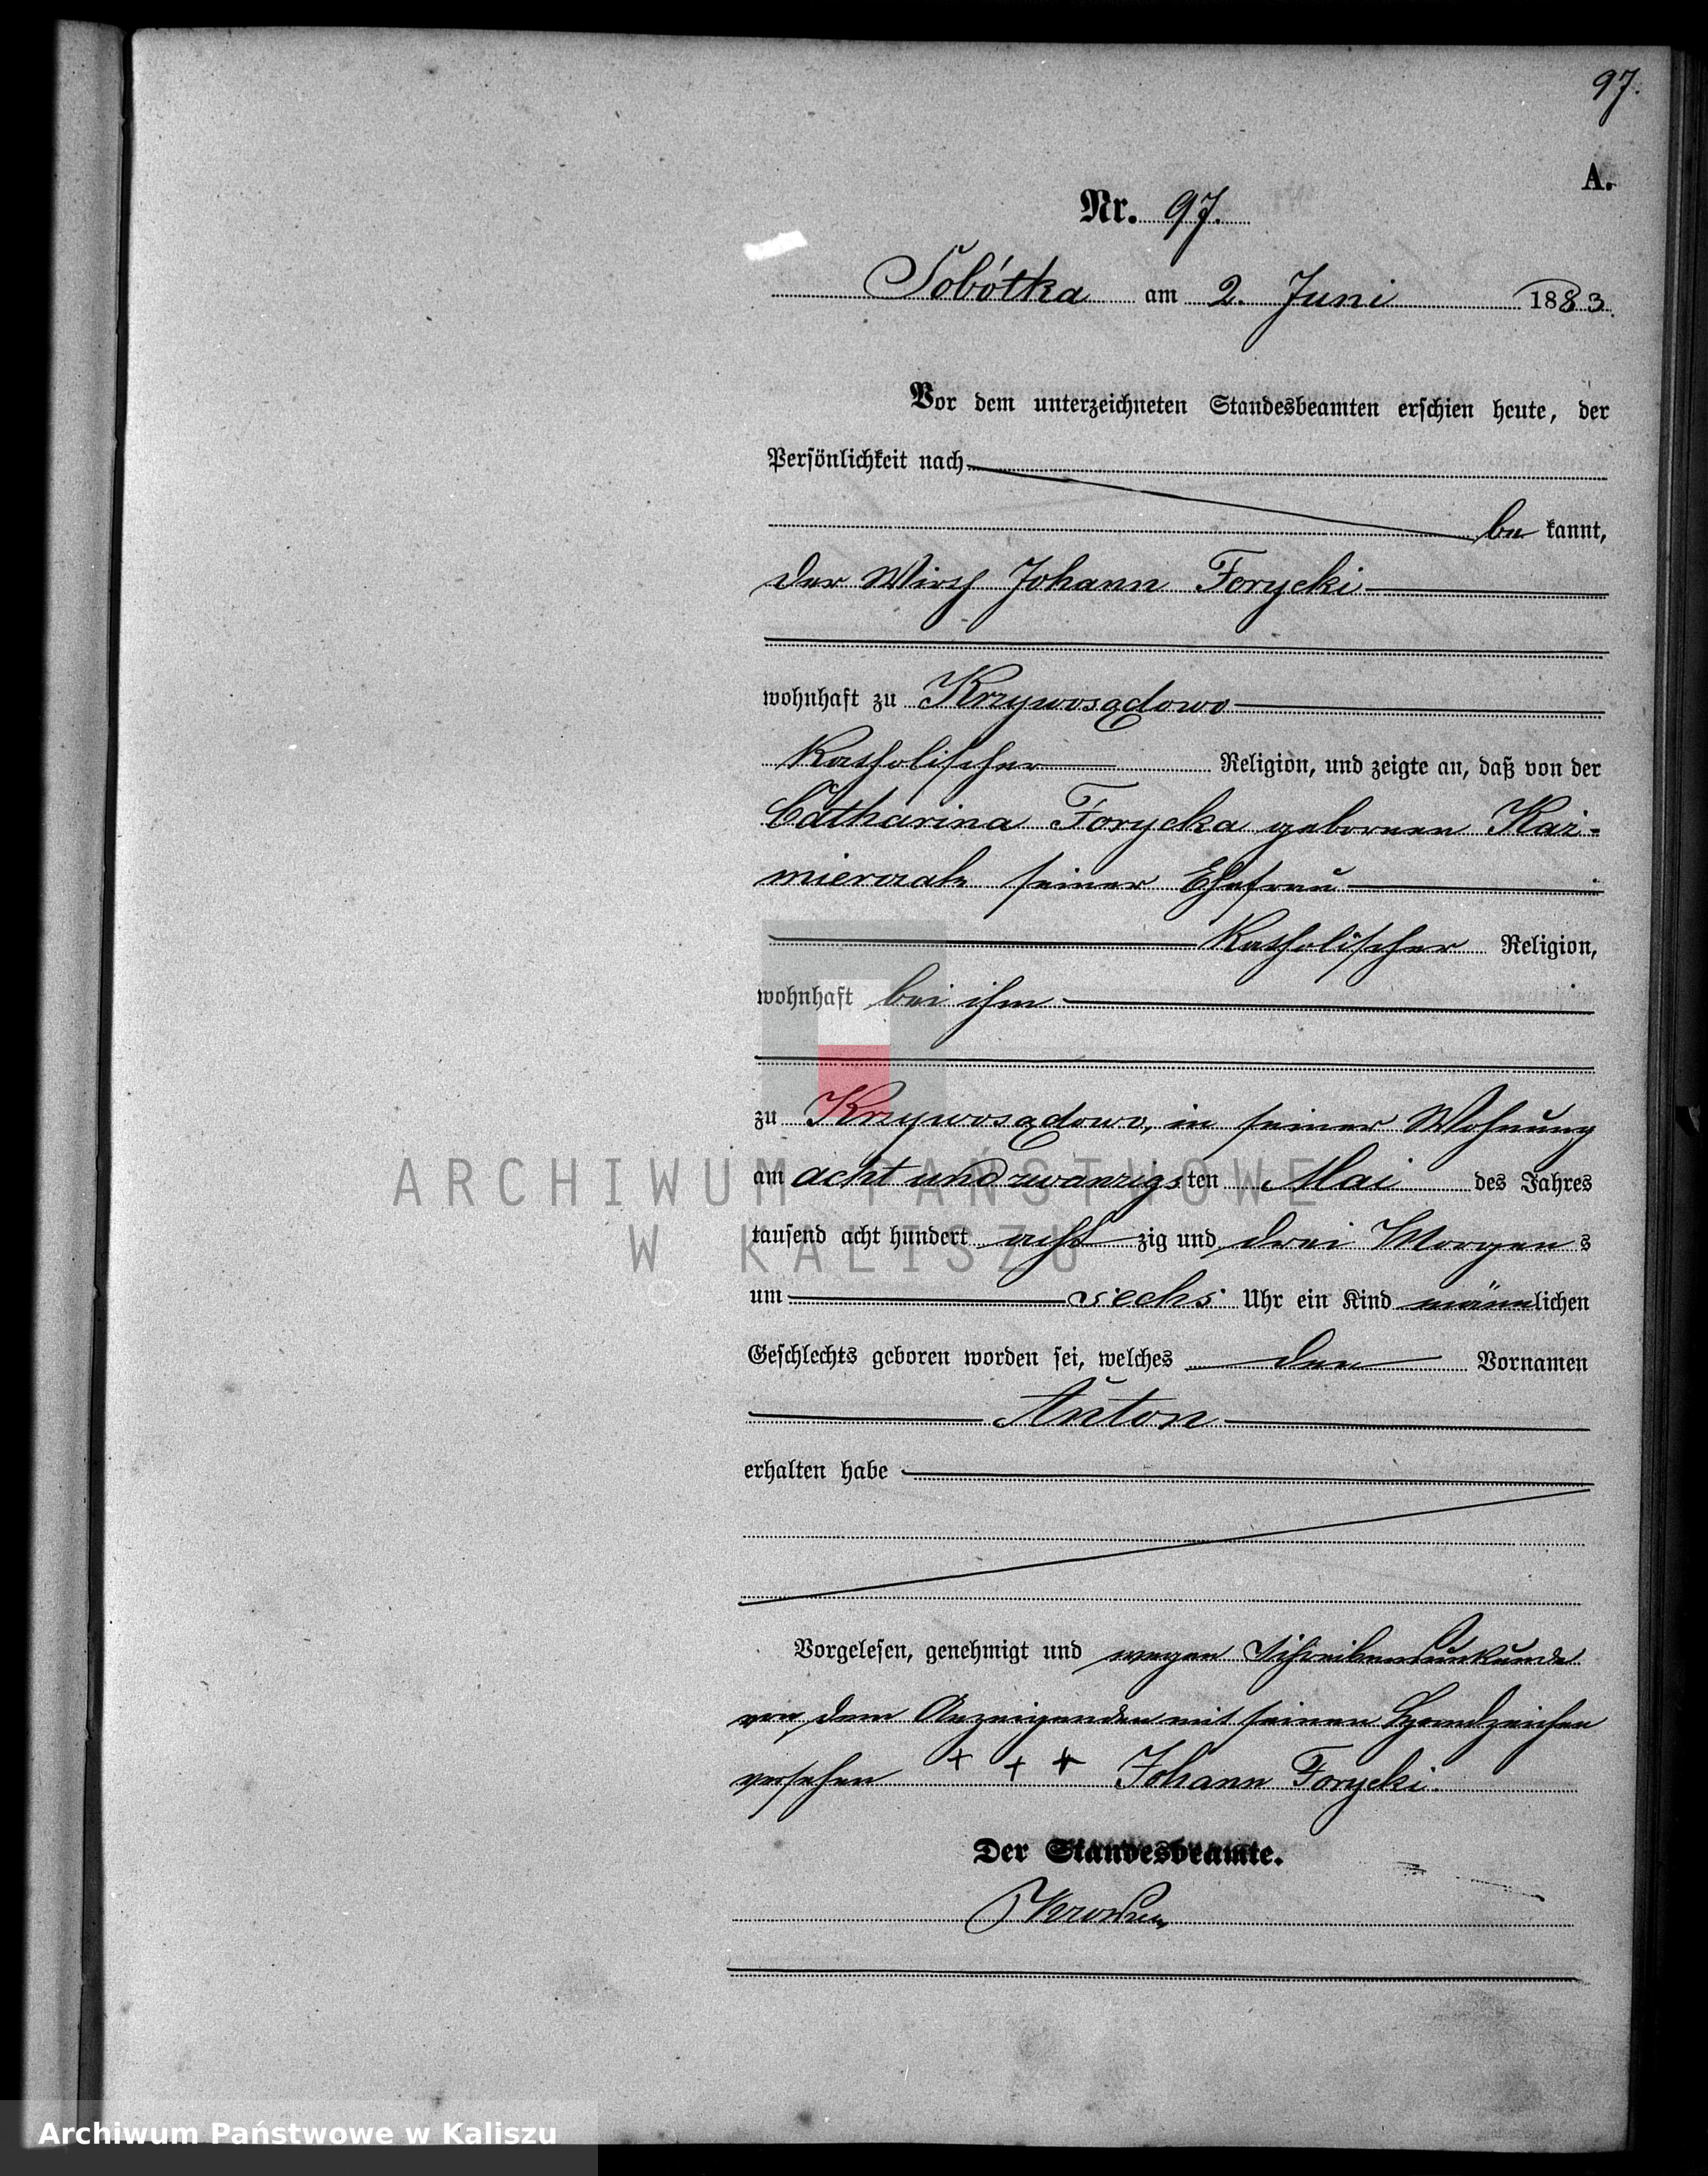 97.
A.
Nr. 97.
Sobótka am 2. Juni 1883.
Vor dem unterzeichneten Standesbeamten erschien heute, der
Persönlichkeit nach
be kannt,
der Wirth Johann Forycki
wohnhaft zu Krzywosądowo
katholischer Religion, und zeigte an, daß von der
Catharina Forycka geborenen Kaz-
mierczak seiner Ehefrau
katholischer Religion,
wohnhaft bei ihm
zu Krzywosądowo, in seiner Wohnung
am acht und zwanzigsten Mai des Jahres
tausend acht hundert acht zig und drei Morgens
um sechs Uhr ein Kind männlichen
Geschlechts geboren worden sei, welches den Vornamen
Anton
erhalten habe
Vorgelesen, genehmigt und wegen Schreibensunkunde
von dem Anzeigenden mit seinen Handzeichen
versehen + + + Johann Forycki.
Der Standesbeamte.
ARCHIWUM PAŃSTWOWE
W KALISZU
Archiwum Państwowe w Kaliszu